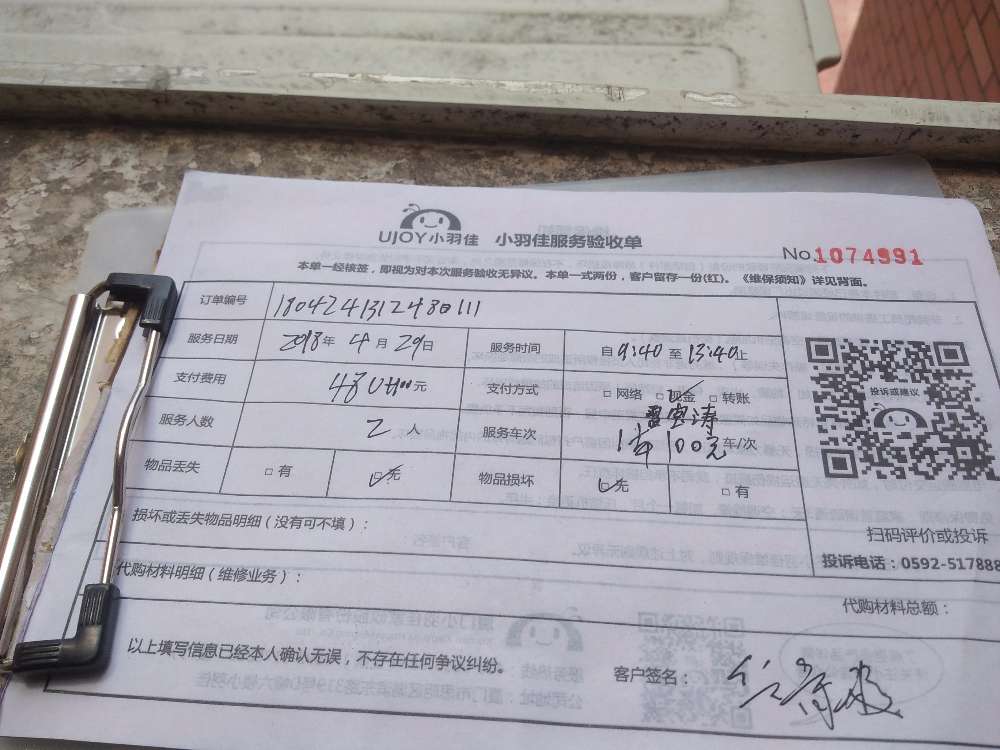 UJOY小羽佳 小羽佳服务验收单
No.1074991
本单一经核签，即视为对本次服务验收无异议。本单一式两份，客户留存一份(红)。《维保须知》详见背面。
订单编号
服务日期 2018年 4月 29日 服务时间 自 9:40 至 13:40止
支付费用 元 支付方式 □ 网络 □ 现金 □ 转账
服务人数 2 人 服务车次 100元 车/次
物品丢失 □ 有 □ 无 物品损坏 □ 无 □ 有
投诉或建议
扫码评价或投诉
损坏或丢失物品明细（没有可不填）：
投诉电话：0592-517888
代购材料明细（维修业务）：
代购材料总额：
以上填写信息已经本人确认无误，不存在任何争议纠纷。
客户签名：